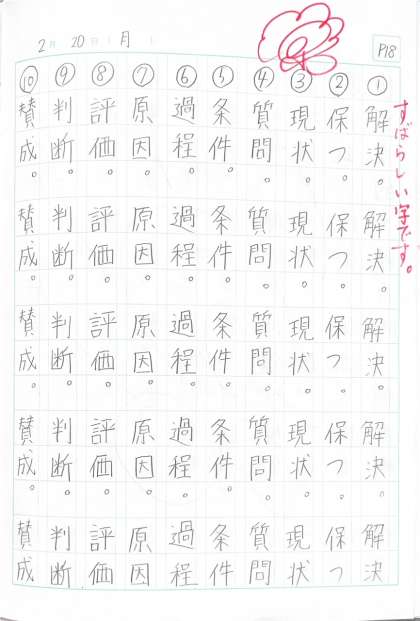 2月 20日 月
P18
すばらしい字です。
① 解決。解決。解決。解決。解決
② 保つ。保つ。保つ。保つ。保つ
③ 現状。現状。現状。現状。現状
④ 質問。質問。質問。質問。質問
⑤ 条件。条件。条件。条件。条件
⑥ 過程。過程。過程。過程。過程
⑦ 原因。原因。原因。原因。原因
⑧ 評価。評価。評価。評価。評価
⑨ 判断。判断。判断。判断。判断
⑩ 賛成。賛成。賛成。賛成。賛成